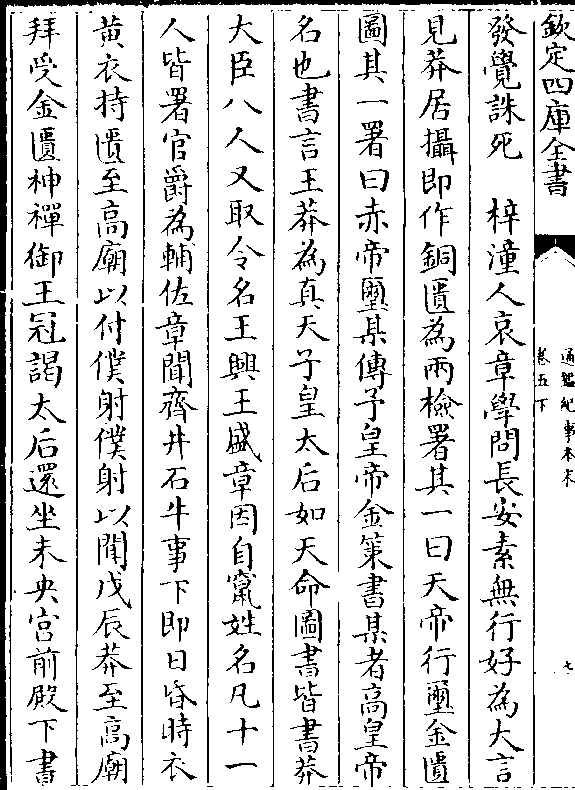 欽定四庫全書
通鑑紀事本末
卷五下
七
發覺誅死　梓潼人哀章學問長安素無行好為大言
見莽居攝即作銅匱為兩檢署其一曰天帝行璽金匱
圖其一署曰赤帝璽某傳予皇帝金策書某者高皇帝
名也書言王莽為真天子皇太后如天命圖書皆書莽
大臣八人又取令名王興王盛章因自竄姓名凡十一
人皆署官爵為輔佐章聞齊井石牛事下即日昏時衣
黄衣持匱至高廟以付僕射僕射以聞戊辰莽至高廟
拜受金匱神禪御王冠謁太后還坐未央宫前殿下書